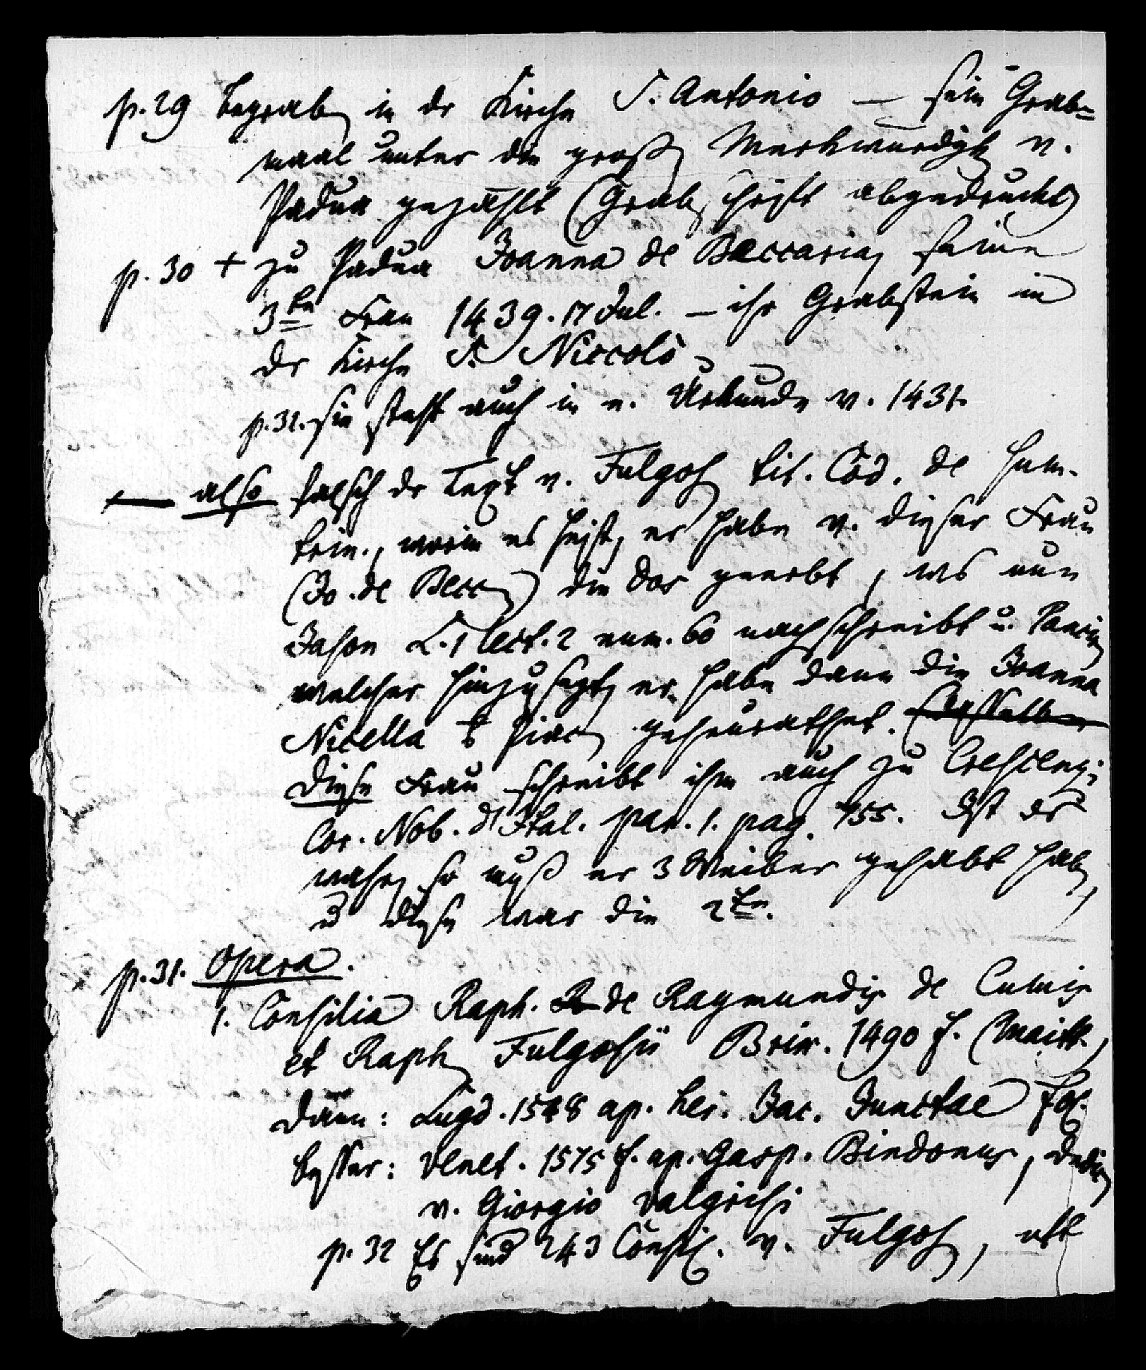 p. 29 begraben in der Kirche S. Antonio — sein Grab=
maal unter die großen Merkwürdigk v.
Padua gezählt (Grabschrift abgedruckt)
p. 30 + zu Padua Joanna de Beccaria, seine
3te Frau 1439. 17 Jul. — ihr Grabstein in
der Kirche S. Niccolò
p. 31. sie steht auch in e. Urkunde v. 1431.
— also falsch der Text v. Fulgos tit. Cod. de
worin es heißt, er habe v. dieser Frau
(Jo. de Becc) die Dos geerbt, was nun
Jason L. 1 lect. 2 num. 60 nachschreibt u. Pancir
welcher hinzusetzt, er habe dann die Joanna
Nicella geheurathet. (dasselbe
Diese Frau schreibt ihm auch zu Crescenzi
Cor. Nob. d'Ital. par. 1. pag. 755. Ist das
wahr, so muß er 3 Weiber gehabt haben,
u diese war die 2te.
p. 31. Opera.
1. Consilia Raph. R de Raymundis de Cumis
et Raph Fulgosii Brix. 1490 f. (Maitt.)
dann: Lugd. 1548 ap. her. Jac. Junctae fol.
besser: Venet. 1575 f. ap. Gasp. Bindonus,
v. Giorgio Valgrisi
p. 32 Es sind 243 Consil. v. Fulgos, oft